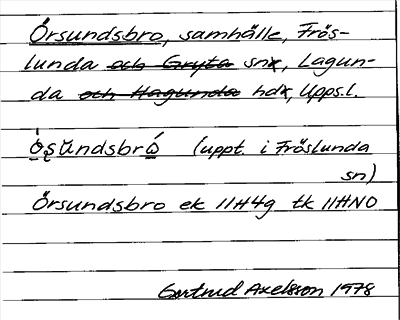 Örsundsbro, samhälle, Frös-
lunda och Gryta snr, Lagun-
da och Hagunda hdr, Upps.l.
ósundsbró (uppt. i Fröslunda
sn)
Örsundsbro ek 11H4g tk 11HNO
Gertrud Axelsson 1978